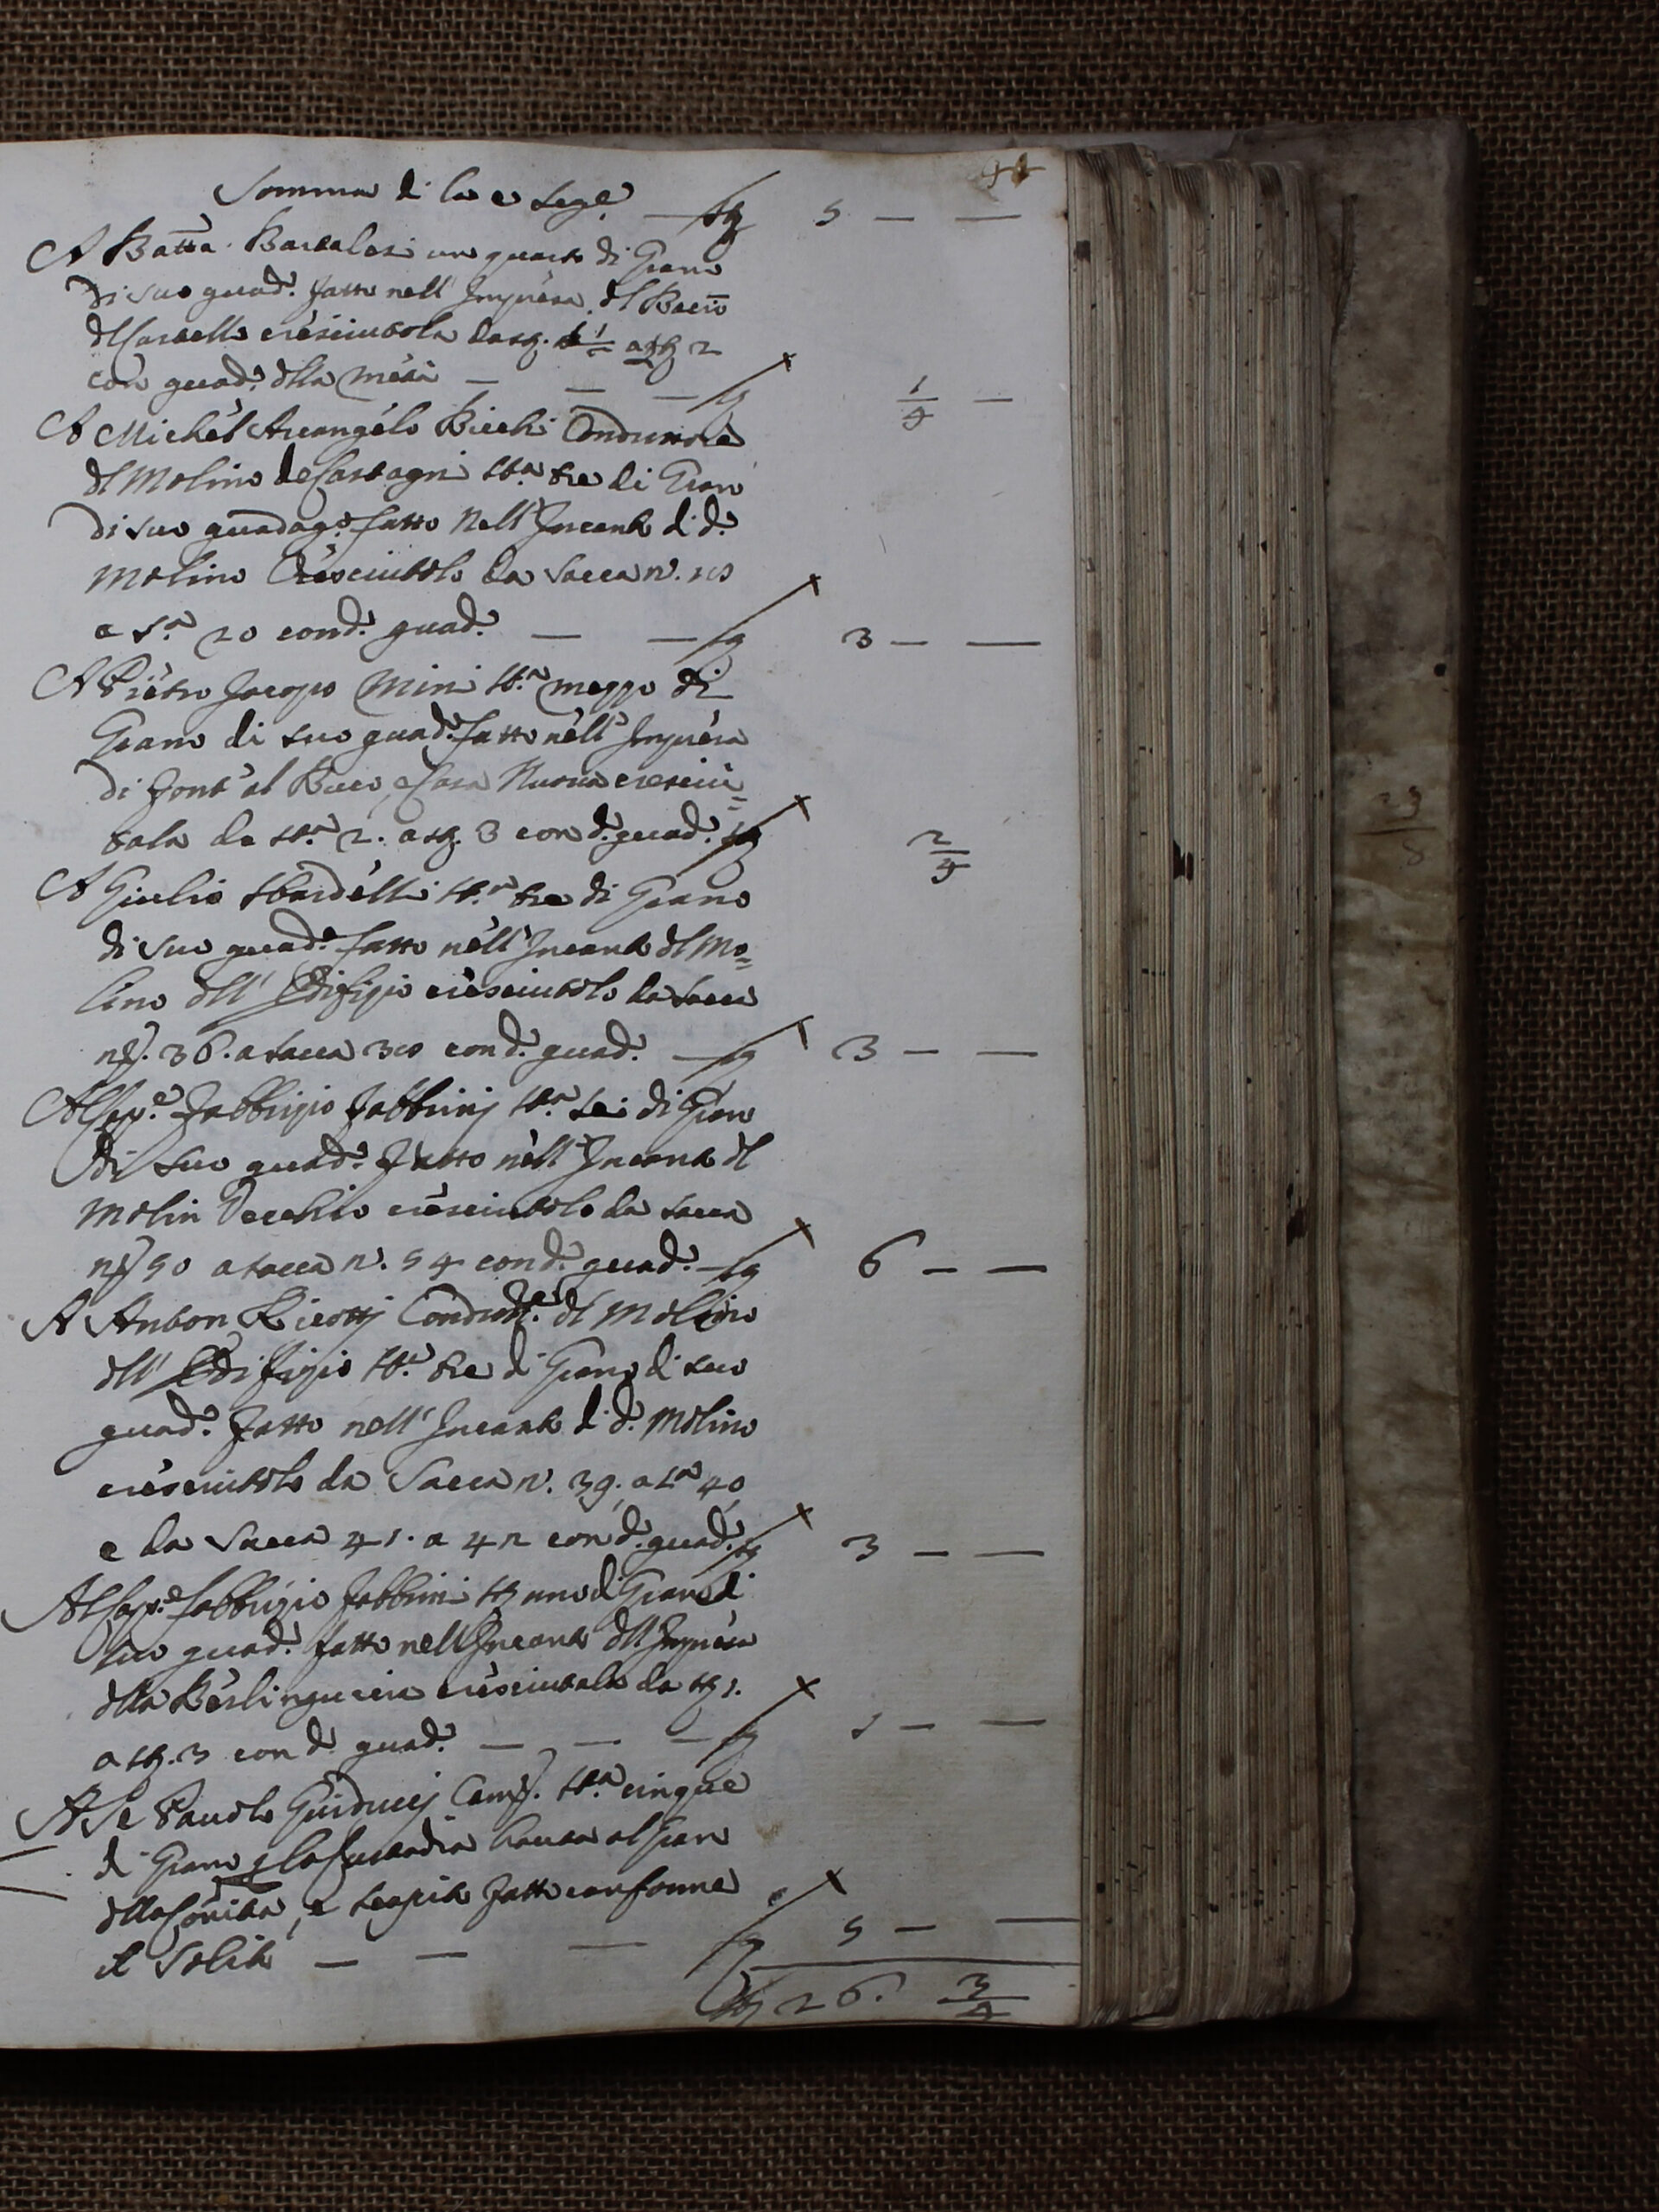 Somma di la e Segue sta 5 — —
A Batta Bartalesi un quarto di Grano
di suo guad.o fatto nell'Impresa dl
dl cresciutola da
con guad.o dlla metà — — — sta 1/4 —
A Michel Arcangelo Bicchi Condutore
dl Molino de Castagni sta tre di Gran
di suo guadag.o fatto Nell'Incanto di d.o
Molino Cresciutolo da Sacca n.
a sa 20 con d.o guad.o — — sta 3 — —
A Pietro Jacopo Mini sta mezzo di
Grano di suo guad.o fatto nell'Impresa
di Font'al Buco, e Casa Nuova cresciu=
tala da sta 2. a sta 3 con d.o guad.o sta 2/4
A Giulio Sbardelli sta tre di Grano
di suo guad.o fatto nell'Incanto dl Mo=
lino dll'Edifizio cresciutolo da Sacca
n.o 36. a sacca con d.o guad.o — sta 3 — —
Al Cap.o Fabbrizio Fabbrinj sta sei di Gran
di suo guad.o fatto nell'Incanto dl
Molin Vecchio cresciutolo da sacca
n.o 50 a sacca n. 54 con d.o guad.o — sta 6 — —
A Anton Ricottj Condut.e dl Molino
dll'Edifizio sta tre di Grano di suo
guad.o fatto nell'Incanto di d.o Molino
cresciutolo da Sacca n. 39. a sa 40
e da Sacca 41. a 42 con d.o guad.o sta 3 — —
Al Cap.o Fabbrizio Fabbrini sta uno di Grano di
suo guad.o fatto nell'Incanto dll'Impresa
dlla Berlingueria cresciutala da sta 1.
a sta 3 con d.o guad.o — — — sta 1 — —
A Se Pauolo Guiduccj Cam.o sta cinque
di Grano p la Custodia hauta al Gran
dlla, e fatto conforme
il Solito — — — sta 5 — —
sta 26. 3/4